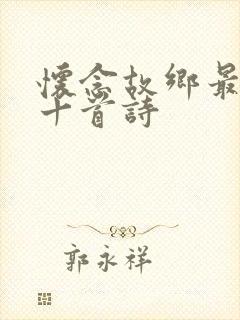 懷念故鄉最
十首詩
郭永祥